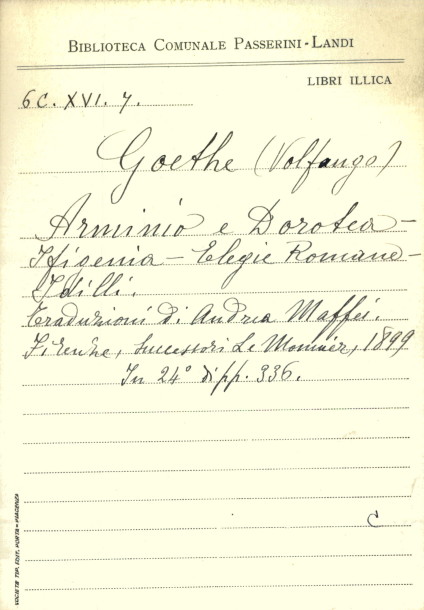 BIBLIOTECA COMUNALE PASSERINI-LANDI
LIBRI ILLICA
6 C. XVI. 7.
Goethe (Volfango)
Arminio e Dorotea –
Ifigenia – Elegie Romane –
Idilli.
Traduzioni di Andrea Maffei.
Firenze, Successori Le Monnier, 1899
In 24° di pp. 336.
C
SOCIETÀ TIP. EDIT. PORTA - PIACENZA